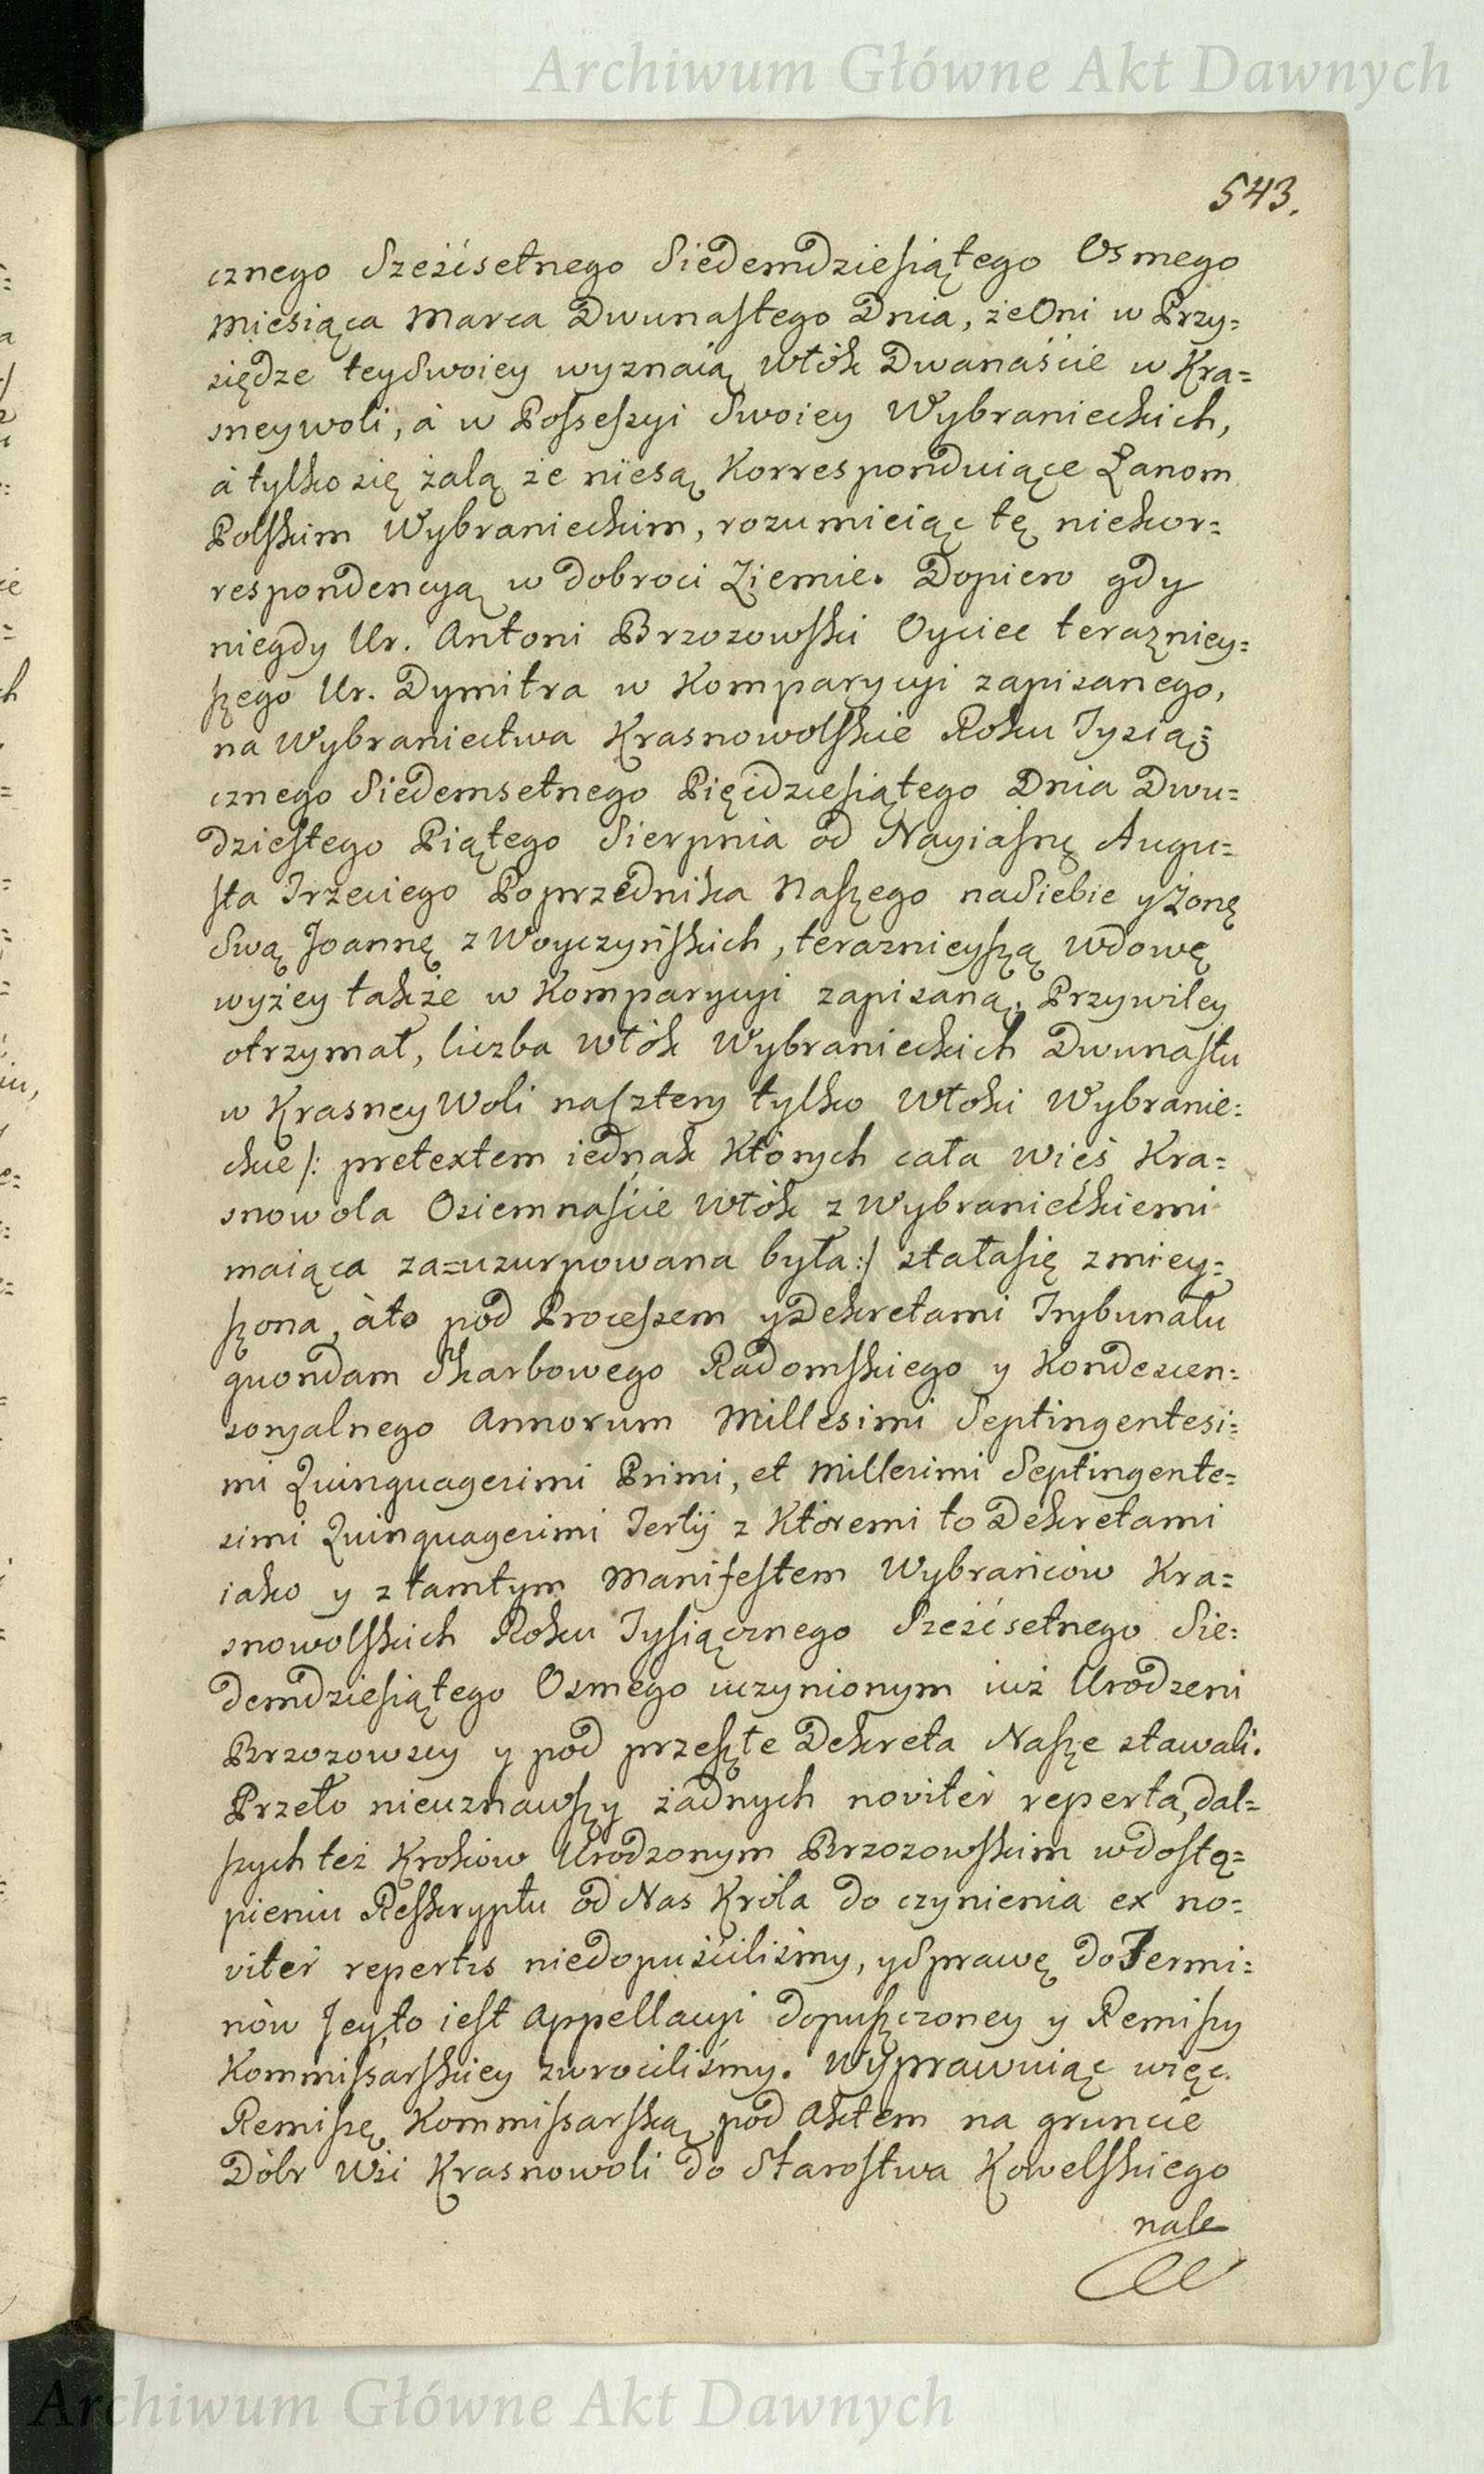 Archiwum Główne Akt Dawnych
543.
cznego Sześćsetnego Siedemdziesiątego Osmego
Miesiąca Marca Dwunastego Dnia, że Oni w Przy=
siędze tey Swoiey wyznaią Włók Dwanaście w Kra=
sneywoli, à w Possessyi Swoiey Wybranieckich,
à tylko się żalą że niesą Korresponduiące Łanom
Polskim Wybranieckim, rozumieiąc tę niekor=
respondencyą w dobroci Ziemie. Dopiero gdy
niegdy Ur. Antoni Brzozowski Oyciec terazniey=
szego Ur. Dymitra w Komparycyi zapisanego,
na Wybraniectwa Krasnowolskie Roku Tysią=
cznego Siedemsetnego Pięćdziesiątego Dnia Dwu=
dziestego Piątego Sierpnia od Nayiasnę Augu=
sta Trzeciego Poprzednika Naszego na Siebie y Żonę
Swą Joannę z Woyczyńskich, teraznieyszą Wdowę
wyżey także w Komparycyi zapisaną, Przywiley
otrzymał, liczba Włók Wybranieckich Dwunastu
w Krasney Woli na sztery tylko Włoki Wybranie=
ckie /: pretextem iednak Których cała Wieś Kra=
snowola Osiemnaście Włók z Wybranieckiemi
maiąca za=uzurpowana była :/ stała się zmiey=
szona, àto pod Processem y Dekretami Trybunału
quondam Skarbowego Radomskiego y Kondescen=
sonjalnego Annorum Millesimi Septingentesi=
mi Quinquagesimi Primi, et Millesimi Septingente=
simi Quinquagesimi Tertij z Któremi to Dekretami
iako y z tamtym Manifestem Wybrańców Kra=
snowolskich Roku Tysiącznego Sześćsetnego Sie=
demdziesiątego Osmego uczynionym iuż Urodzeni
Brzozowscy y pod przeszłe Dekreta Nasze stawali.
Przeto nieuznawszy żadnych noviter reperta, dal=
szych też Kroków Urodzonym Brzozowskim w dostą=
pieniu Reskryptu od Nas Króla do czynienia ex no=
viter repertis niedopuściliśmy, y Sprawę do Termi=
nów Jey, to iest Appellacyi dopuszczoney y Remissy
Kommissarskiey zwróciliśmy. Wyprawuiąc więc
Remissę Kommissarską pod Aktem na gruncie
Dóbr Wsi Krasnowoli do Starostwa Kowelskiego
nale
Archiwum Główne Akt Dawnych